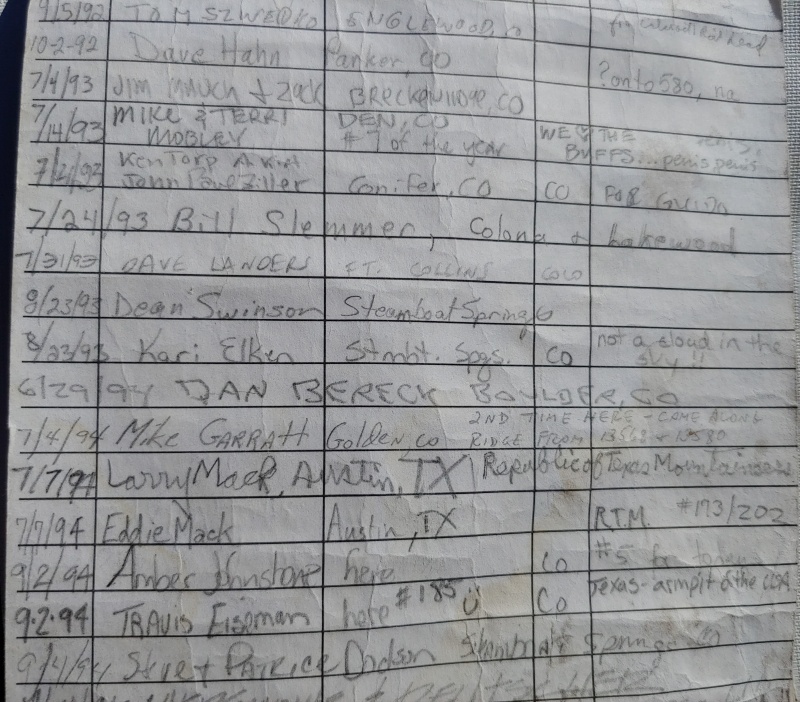 9/5/92 TOM ENGLEWOOD, 
10-2-92 Dave Hahn Parker, CO
7/4/93 JIM MAUCH + Zack BRECKENRIDGE, CO ? onto 580, na
7/14/93 MIKE & TERRI MOBLEY DEN, CO #7 of the year WE ♡ THE BUFFS... penis penis
Ken Torp Conifer, CO CO FOR
7/24/93 Bill Slemmer, Colona + Lakewood
7/31/93 DAVE LANDERS FT. COLLINS COLO
8/23/93 Dean Swinson Steamboat Springs
8/23/93 Kari Elken Stmbt. Spgs. CO not a cloud in the sky!!
6/29/94 DAN BERECK BOULDER, CO
7/4/94 Mike GARRATT Golden, CO 2ND TIME HERE - CAME ALONG RIDGE FROM 13580
7/7/94 Larry Mack, Austin, TX Republic of Texas Mountaineers
7/7/94 Eddie Mack Austin, TX R.T.M. #173/202
9/2/94 Amber Johnstone here CO #5 for
9.2.94 TRAVIS Eiseman here #185 CO Texas - armpit of the USA
9/4/94 PATRICE Dodson Steamboat Springs